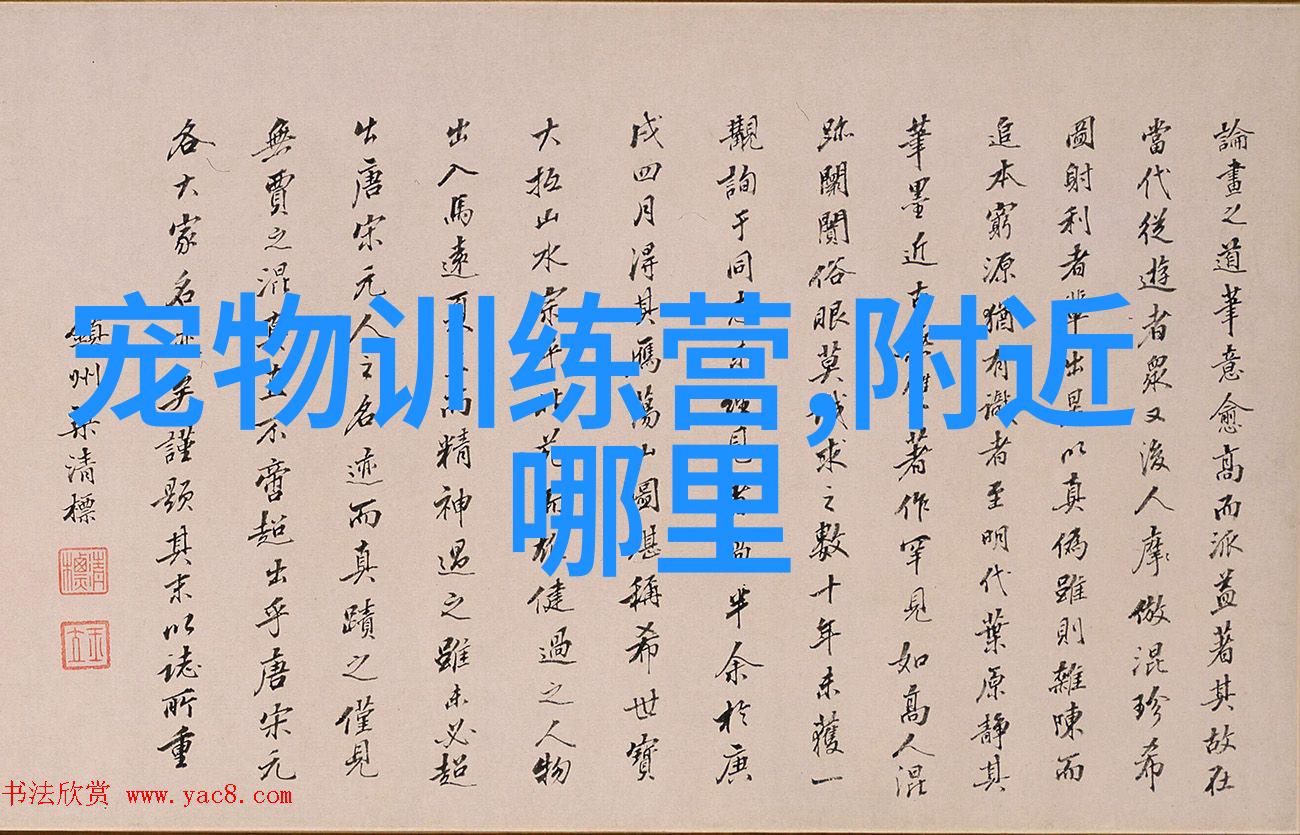 宠物训练营,附近
哪里
論畫之道筆意愈高而派益著其故在
當代從遊者眾又後人摩倣混珍希
圖射利者輩出是以真偽雖則雜陳而
追本窮源猶有識者至明代葉原靜其
筆墨近古著作罕見如高人混
跡闤闠俗眼莫識求之數十年未獲一
觀詢于同見半余於庚
戌四月得其鴈蕩山圖甚稱希世寶
大抵山水宗健過之人物
出入馬遠夏而精神過之雖未必超
出唐宋元人之名迹而真蹟之僅見
無賈之混真不啻超出乎唐宋元
各大家名迹矣謹題其末以誌所重
鎮州梁清標
清標
玉立
书法欣赏 www.yac8.com